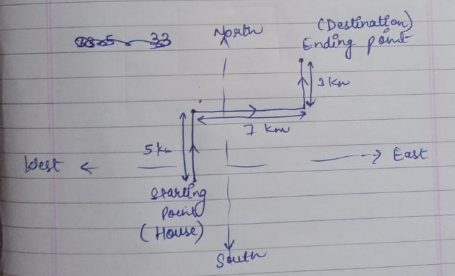 North
(Destination)
Ending point
3 km
7 km
5 km
West
East
Starting
Point
(House)
South